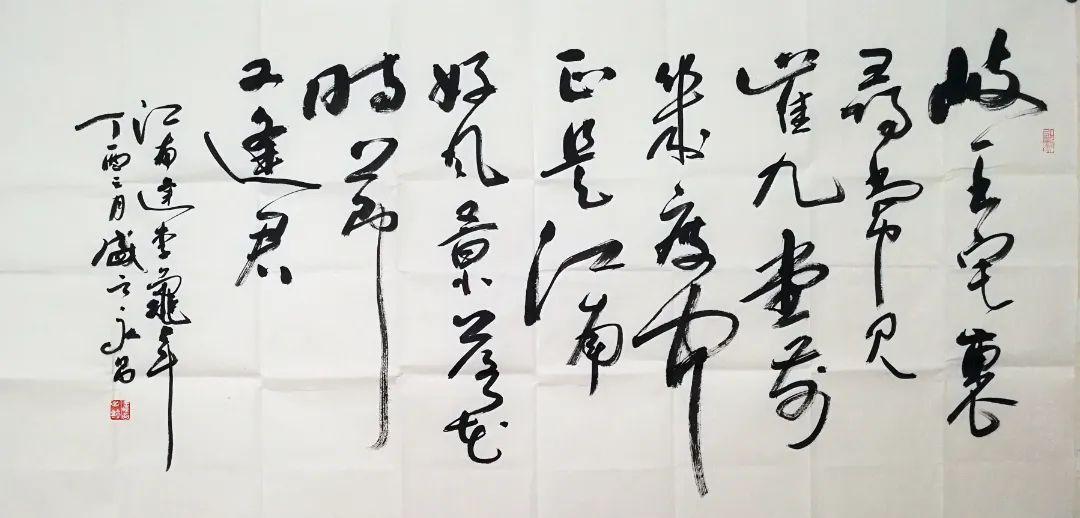 岐王宅裏
尋常見
崔九堂前
幾度聞
正是江南
好風景落花
時節
又逢君
江南逢李龜年
丁酉二月盛